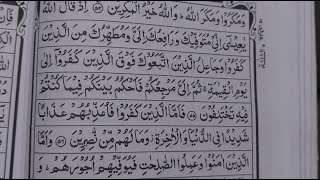 وَمَكَرُوْا وَمَكَرَ اللّٰهُ ؕ وَاللّٰهُ خَيْرُ الْمٰكِرِيْنَ ﴿۵۴﴾ اِذْ قَالَ اللّٰهُ
يٰعِيْسٰۤى اِنِّىْ مُتَوَفِّيْكَ وَرَافِعُكَ اِلَىَّ وَمُطَهِّرُكَ مِنَ الَّذِيْنَ
كَفَرُوْا وَجَاعِلُ الَّذِيْنَ اتَّبَعُوْكَ فَوْقَ الَّذِيْنَ كَفَرُوْۤا اِلٰى
يَوْمِ الْقِيٰمَةِ ۚ ثُمَّ اِلَىَّ مَرْجِعُكُمْ فَاَحْكُمُ بَيْنَكُمْ فِيْمَا كُنْتُمْ
فِيْهِ تَخْتَلِفُوْنَ ﴿۵۵﴾ فَاَمَّا الَّذِيْنَ كَفَرُوْا فَاُعَذِّبُهُمْ عَذَابًا
شَدِيْدًا فِى الدُّنْيَا وَالْاٰخِرَةِ ؗ وَمَا لَهُمْ مِّنْ نّٰصِرِيْنَ ﴿۵۶﴾ وَاَمَّا
الَّذِيْنَ اٰمَنُوْا وَعَمِلُوا الصّٰلِحٰتِ فَيُوَفِّيْهِمْ اُجُوْرَهُمْ ؕ وَ